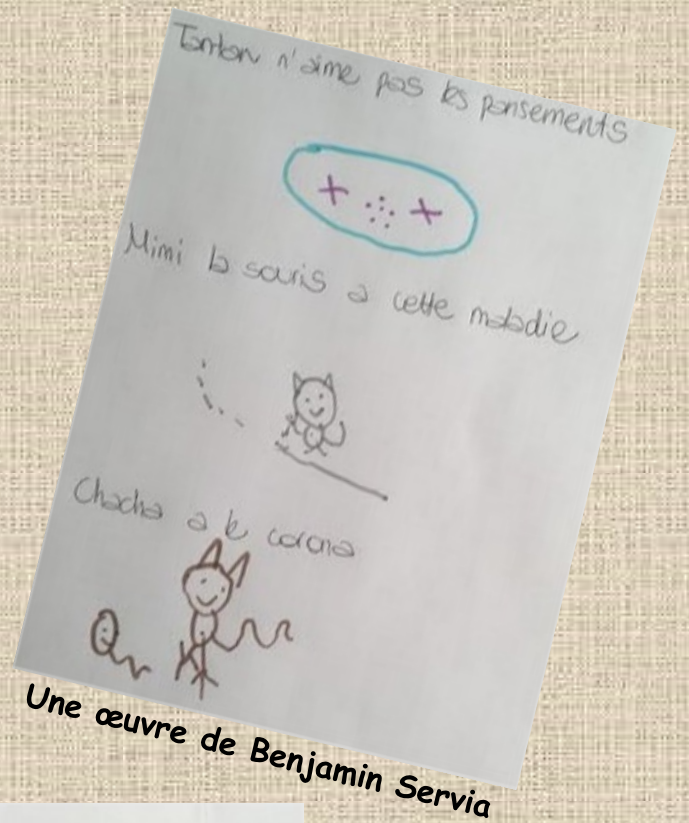 Tonton n'aime pas les pansements
Mimi la souris a cette maladie
Chacha a le corona
Une œuvre de Benjamin Servia